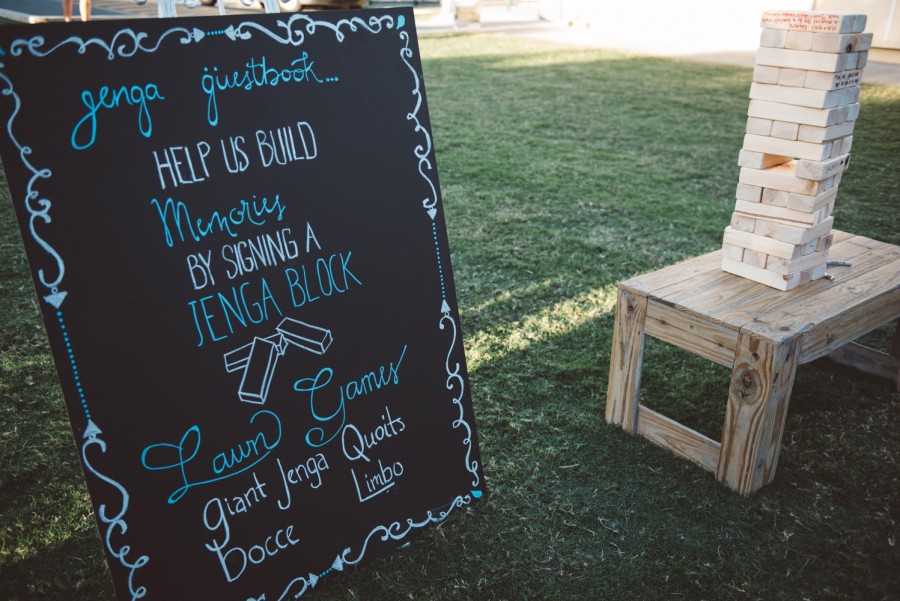 jenga guestbook...
HELP US BUILD
Memories
BY SIGNING A
JENGA BLOCK
Lawn Games
giant Jenga Quoits
bocce Limbo